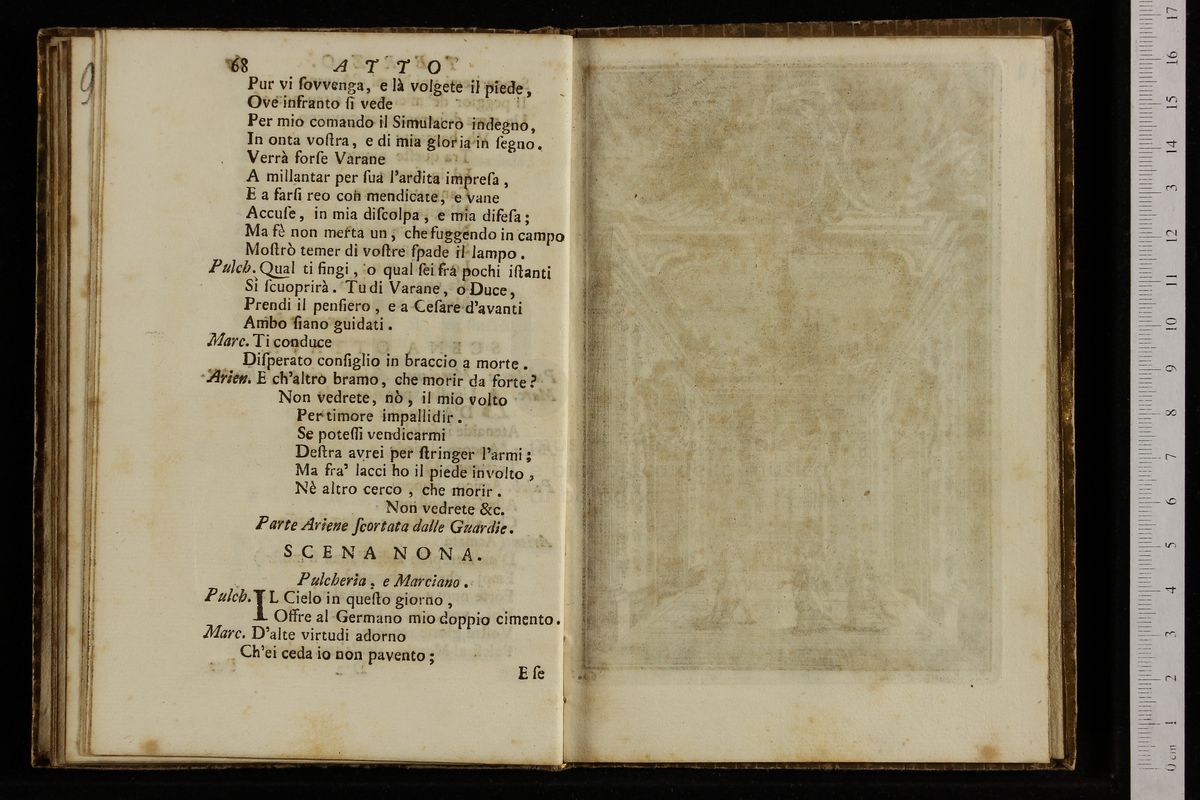 68 ATTO
Pur vi ſovvenga, e là volgete il piede,
Ove infranto ſi vede
Per mio comando il Simulacro indegno,
In onta voſtra, e di mia gloria in ſegno.
Verrà forſe Varane
A millantar per ſua l'ardita impreſa,
E a farſi reo con mendicate, e vane
Accuſe, in mia diſcolpa, e mia difeſa;
Ma fè non merta un, che fuggendo in campo
Moſtrò temer di voſtre ſpade il lampo.
Pulch. Qual ti fingi, o qual ſei frà pochi iſtanti
Si ſcuoprirà. Tu di Varane, o Duce,
Prendi il penſiero, e a Ceſare d'avanti
Ambo ſiano guidati.
Marc. Ti conduce
Diſperato conſiglio in braccio a morte.
Arien. E ch'altro bramo, che morir da forte?
Non vedrete, nò, il mio volto
Per timore impallidir.
Se poteſſi vendicarmi
Deſtra avrei per ſtringer l'armi;
Ma fra' lacci ho il piede involto,
Nè altro cerco, che morir.
Non vedrete &c.
Parte Ariene ſcortata dalle Guardie.
SCENA NONA.
Pulcheria, e Marciano.
Pulch. IL Cielo in queſto giorno,
Offre al Germano mio doppio cimento.
Marc. D'alte virtudi adorno
Ch'ei ceda io non pavento;
E ſe
9
0 cm 1 2 3 4 5 6 7 8 9 10 11 12 3 14 15 16 17